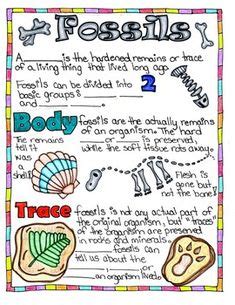 Fossils
A ______ is the hardened remains or trace
of a living thing that lived long ago.
Fossils can be divided into 2
basic groups: ______
and ______.
Body fossils are the actually remains
of an organism. The hard
______ or ______ is preserved,
while the soft tissue rots away.
The remains
tell it
was a
shell.
Flesh is
gone but
not the bone!
Trace fossils is not any actual part of
the original organism, but "traces"
of the organism are preserved
in rocks and minerals.
______ fossils can
tell us about the
______ in ______
an organism lived.